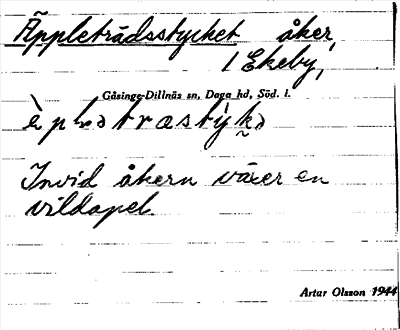 Äppleträdsstycket åker,
1 Ekeby,
Gåsinge-Dillnäs sn, Daga hd, Söd. l.
Invid åkern växer en
vildapel.
Artur Olsson 1944